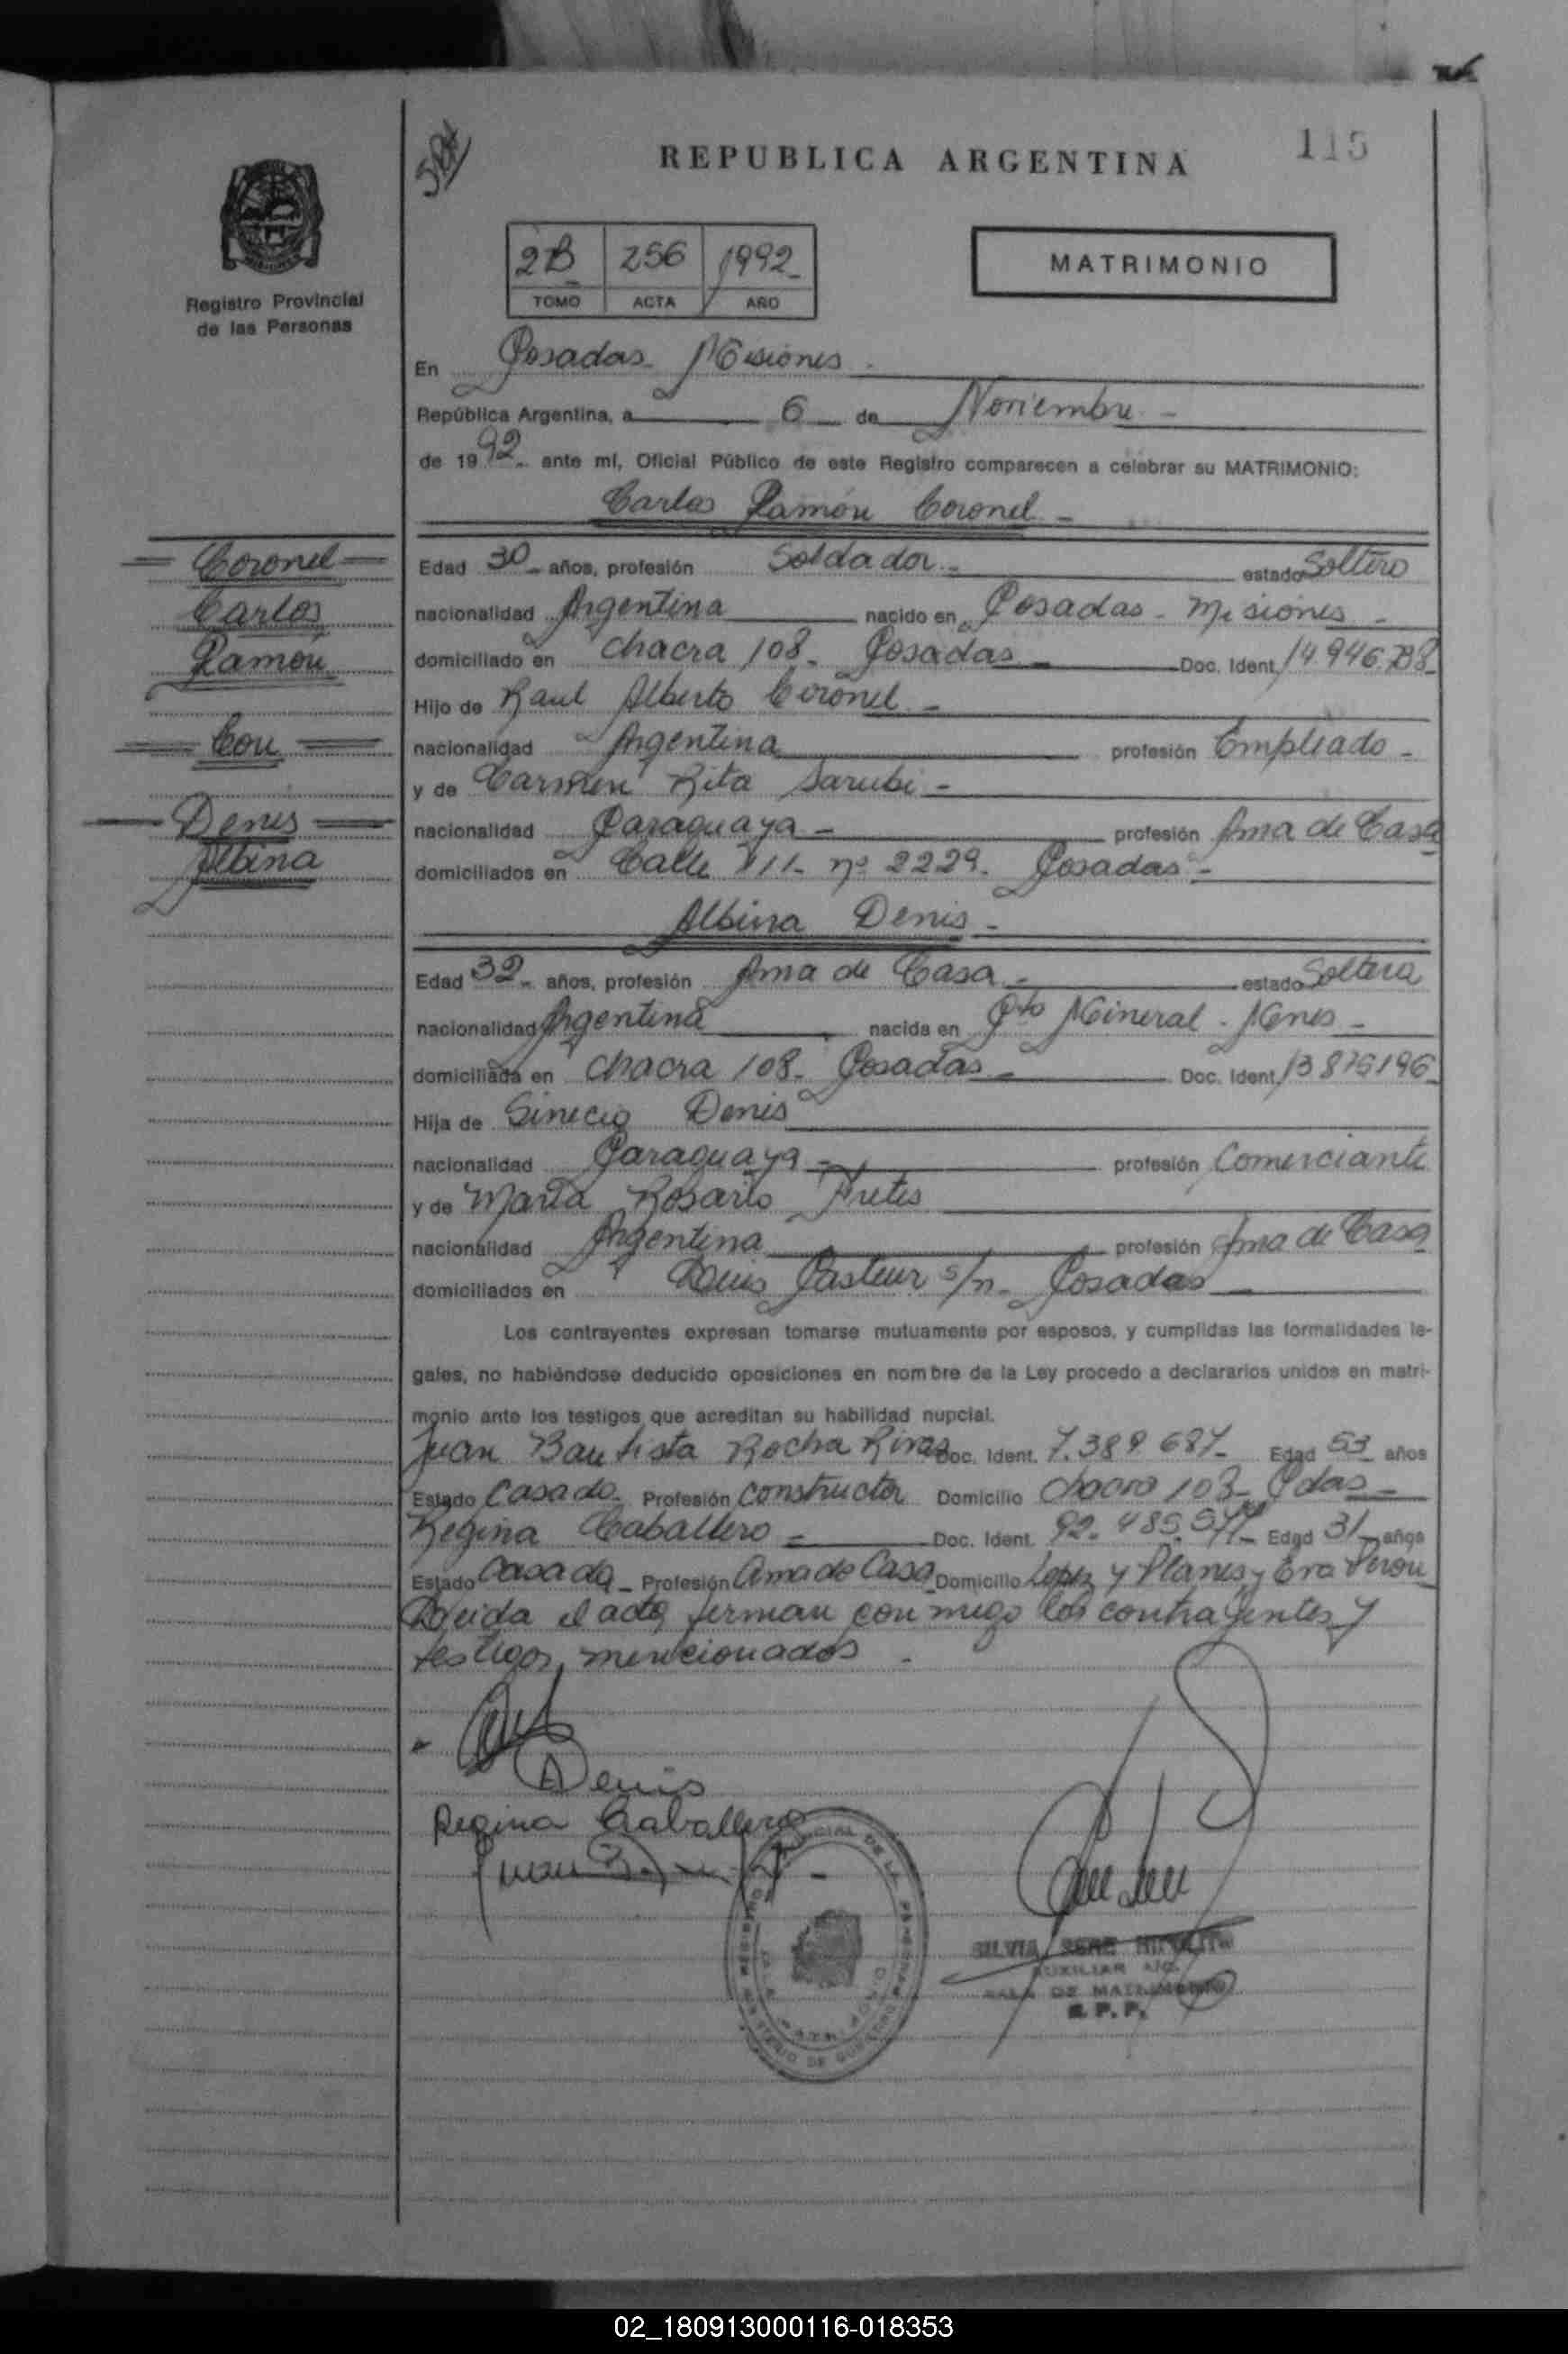 115
REPUBLICA ARGENTINA
2B 256 1992
TOMO ACTA AÑO
MATRIMONIO
Registro Provincial
de las Personas
En Posadas Misiones
República Argentina, a 6 de Noviembre
de 1992 ante mí, Oficial Público de este Registro comparecen a celebrar su MATRIMONIO:
Carlos Ramón Coronel
Coronel
Carlos
Ramón
Con
Denis
Albina
Edad 30 años, profesión Soldador estado Soltero
nacionalidad Argentina nacido en Posadas - Misiones
domiciliado en Chacra 108 Posadas Doc. Ident.
Hijo de Raul Alberto Coronel
nacionalidad Argentina profesión Empleado
y de Carmen Rita Sarubi
nacionalidad Paraguaya profesión Ama de Casa
domiciliados en Calle nº 2229 Posadas
Albina Denis
Edad 32 años, profesión Ama de Casa estado Soltera
nacionalidad Argentina nacida en Pto Mineral - Mnes
domiciliada en Chacra 108 Posadas Doc. Ident.
Hija de Sinecio Denis
nacionalidad Paraguaya profesión Comerciante
y de Maria Rosario Fretes
nacionalidad Argentina profesión Ama de Casa
domiciliados en Luis Pasteur s/n Posadas
Los contrayentes expresan tomarse mutuamente por esposos, y cumplidas las formalidades le-
gales, no habiéndose deducido oposiciones en nombre de la Ley procedo a declararlos unidos en matri-
monio ante los testigos que acreditan su habilidad nupcial.
Juan Bautista Rocha Rivas Doc. Ident. 7.389.687 Edad 53 años
Estado Casado Profesión constructor Domicilio Chacra 103 Pdas
Regina Caballero Doc. Ident. Edad 31 años
Estado Casada Profesión Ama de Casa Domicilio Lopez y Planes y Eva Peron
Leida el acta firman con migo los contrayentes y
testigos mencionados
Denis
Regina Caballero
SILVIA
AUXILIAR
SALA DE MATRIMONIO
R. P. P.
02_180913000116-018353